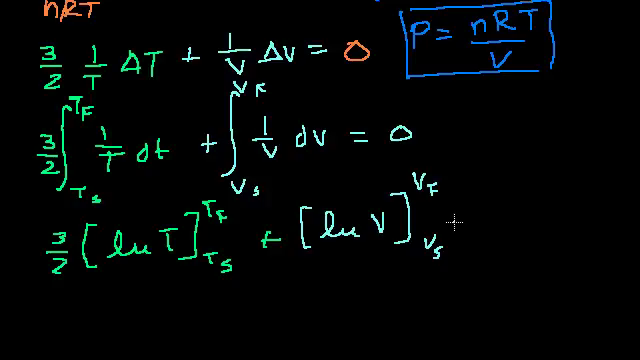 nRT
P = nRT/V
3/2 1/T ΔT + 1/V ΔV = 0
3/2 ∫_{T_S}^{T_F} 1/T dt + ∫_{V_S}^{V_F} 1/V dV = 0
3/2 [ln T]_{T_S}^{T_F} + [ln V]_{V_S}^{V_F}